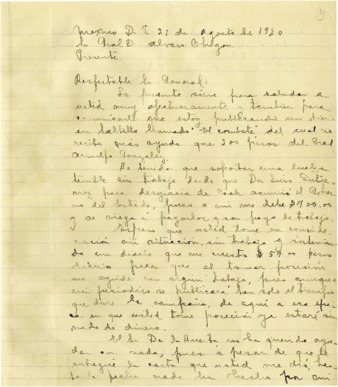 Mexico D. F. 21 de agosto de 1920
Sr Gral D. Alvaro Obregon
Presente
Respetable Sr General:
La presente sirve para saludar a
usted muy afectuosamente y tambien para
comunicarle que estoy publicando un diario
llamado "El combate" del cual no
recibo más ayuda que 300 pesos del Gral
Arnulfo Gonzalez.
He tenido que soportar una lucha
terrible sin trabajo desde que Dn Luis Gutie-
rrez para desgracia de Coah asumió el Gobier
no del Estado, pues a mi me debe $700.00
y se niega á pagarlos, y son pago de trabajo.
Espero que usted tome en conside
ración mi situacion, sin trabajo y sostenien
do un diario que me cuesta $50.00 pesos
diarios para que al tomar posesión
me ayude en algun trabajo, pues aunque
mi periodico se publicará tan solo el tiempo
que dure la campaña, de aquí a esa epo
ca en que usted tome posesión ya estaré
de dinero.
El Sr De la Huerta no ha querido ayu
darme con nada, pues a pesar de que le
entregué la carta que usted me dió, has
ta la fecha nada ha hecho por mi